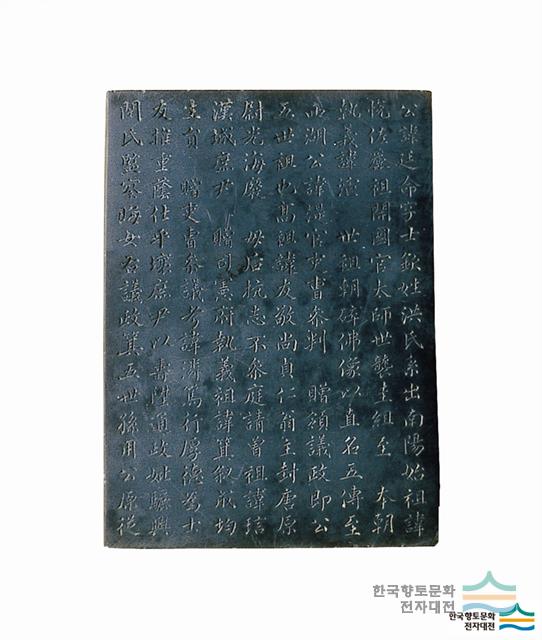 公諱廷命字士欽姓洪氏系出南陽始祖諱
悅佐麗祖開國官太師世襲圭組至 本朝
執義諱 世祖朝碎佛像以直名五傳至
西湖公諱湜官吏曹參判 贈領議政即公
五世祖也高祖諱友敬尚貞仁翁主封唐原
尉光海廢 母后抗志不參庭請曾祖諱
漢城庶尹 贈司憲府執義祖諱箕叙成均
生員 贈吏曹參議考諱 篤行厚德為士
友推重蔭仕平壤庶尹以壽陞通政妣驪興
閔氏監察晦女右議政箕五世孫用公原從
한국향토문화
전자대전
한국향토문화
전자대전